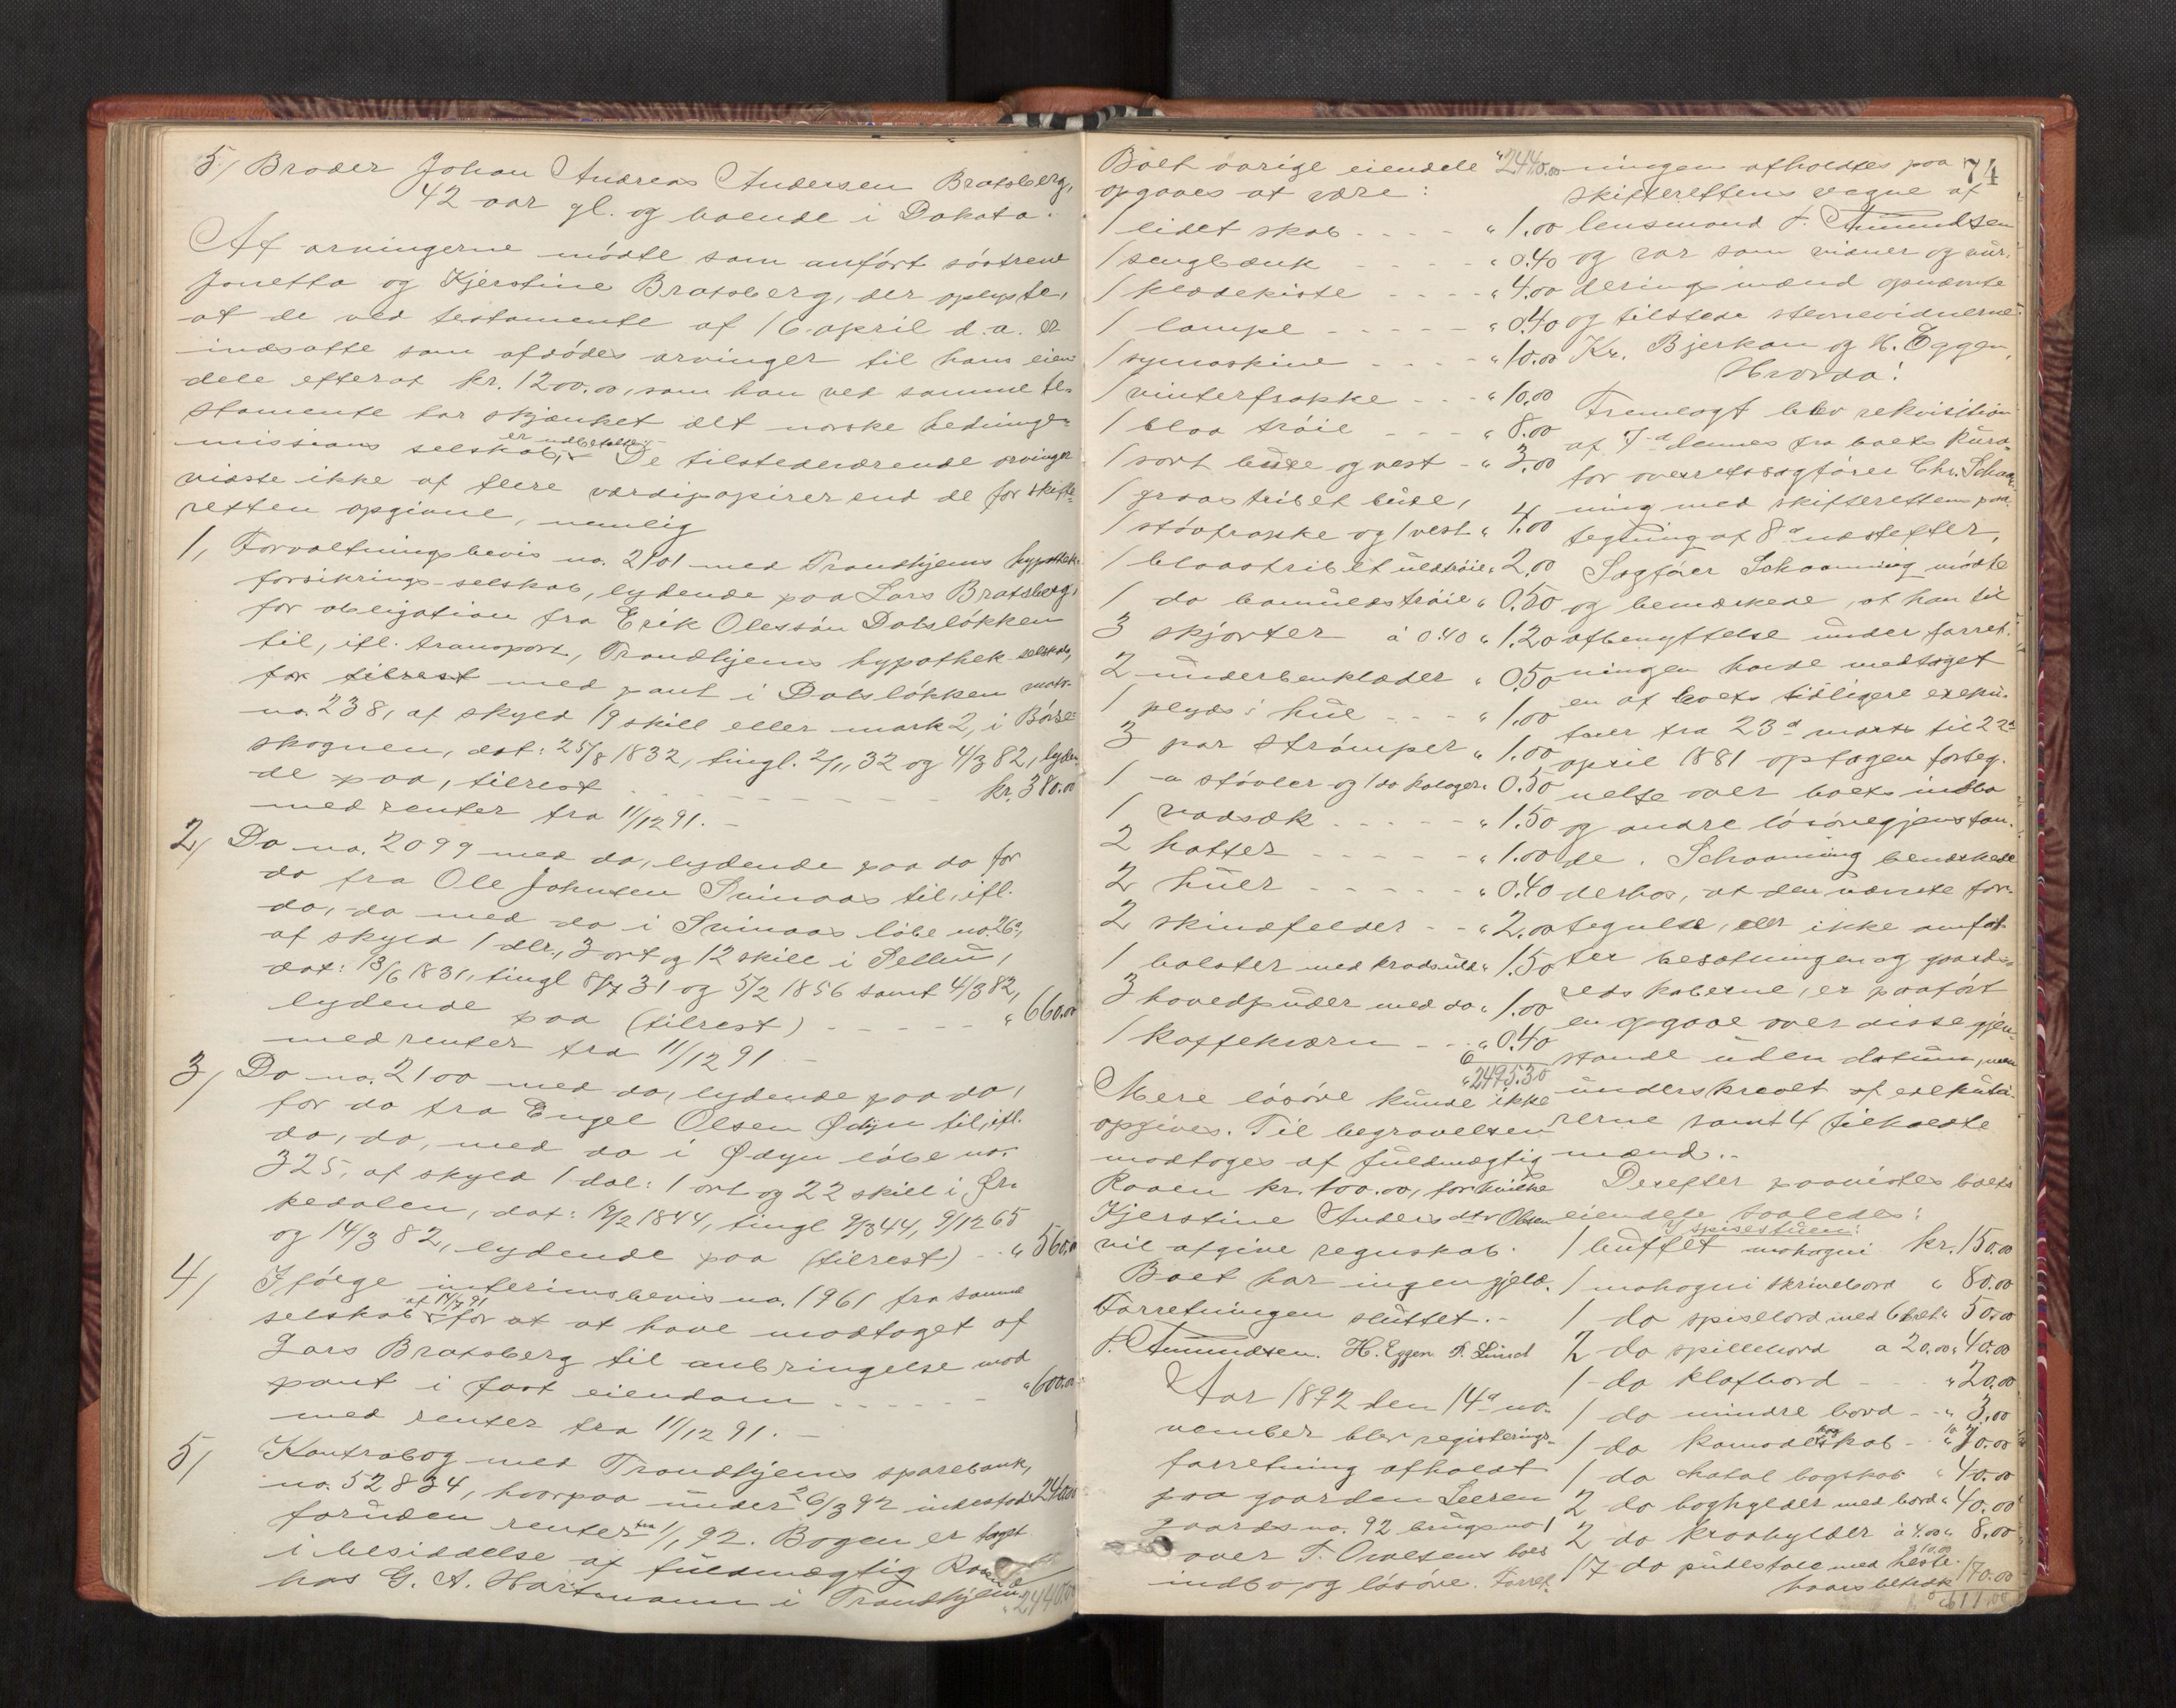 5/ Broder Johan Andreas Andersen Bratsberg,
42 aar gl. og boende i Dakota.
Af arvingerne mødte som anført søstrene
Jonetta og Kjerstine Bratsberg, der oplyste,
at de ved testamente af 16 april d.a. er
indsatte som afdødes arvinger til hans eien-
dele efterat kr. 1200.00, som han ved samme te-
stamente har skjænket det norske hedninge-
missions selskab, er udbetalte. De tilstedeværende arvinger
vidste ikke af flere værdipapirer end de for skifte-
retten opgivne, nemlig
1, Forvaltningsbevis no. 2101 med Trondhjems hypothek-
forsikrings-selskab, lydende paa Lars Bratsberg,
for obligation fra Erik Olessøn Dalsløkken
til, ifl. transport, Trondhjems hypothek selskab,
for tilrest med pant i Dalsløkken matr.
no. 238, af skyld 19 skill eller mark 2, i Børse-
skognen, dat: 25/8 1832, tingl. 2/1, 32 og 4/3 82, lyden-
de paa, tilrest - - - - kr. 380.00
med renter fra 11/12 91. -
2/ Do no. 2099 med do, lydende paa do for
do fra Ole Johnsen Svinaas til, ifl.
do, do med do i Svinaas løbe no. 26a,
af skyld 1 dlr., 3 ort og 12 skill i Selbu,
dat: 13/6 1831, tingl 8/7 31 og 5/2 1856 samt 4/3 82,
lydende paa (tilrest) - - - - " 660.00
med renter fra 11/12 91. -
3/ Do no. 2100 med do, lydende paa do,
for do fra Engel Olsen Ødyn til, ifl.
do, do, med do i Ødyn løbe no.
325, af skyld 1 dal: 1 ort og 22 skill i Ør-
kedalen, dat: 12/2 1844, tingl 9/3 44, 9/12 65
og 14/3 82, lydende paa (tilrest) - - " 560.00
4/ Ifølge interimsbevis no. 1961 fra samme
selskab af 14/7 91 for at at have modtaget af
Lars Bratsberg til anbringelse mod
pant i fast eiendom - - - - " 600.00
med renter fra 11/12 91. -
5/ Kontrabog med Trondhjems sparebank,
no. 52834, hvorpaa under 26/3 92 indestod " 240.00
foruden renter fra 1/1 92. Bogen er taget
i besiddelse af fuldmægtig Raaen
hos G. A. Hartmann i Trondhjem.
" 2440.00
74
Boets øvrige eiendele " 2440.00
opgaves at være:
1 lidet skab - - - - " 1.00
1 sengbænk - - - " 0.40
1 klædekiste - - - - " 4.00
1 lampe - - - - - " 0.40
1 symaskine - - - - " 10.00
1 vinterfrakke - - - " 10.00
1 blaa trøie - - - " 8.00
1 sort buxe og vest - " 3.00
1 graastribet buxe,
1 støvfrakke og 1 vest " 4.00
1 blaastribet uldtrøie " 2.00
1 do bomuldstrøie " 0.50
3 skjorter à 0.40 " 1.20
2 underbenklæder " 0.50
1 plyds hue - - - " 1.00
3 par strømper " 1.00
1 " støvler og 1 do kalager " 0.50
1 vadsæk - - - - - " 1.50
2 hatter - - - - - " 1.00
2 huer - - - - - " 0.40
2 skindfelder - - " 2.00
1 bolster med kradsuld " 1.50
3 hovedpuder med do " 1.00
1 kaffekværn - - " 0.40
" 2495.30
Mere løsøre kunde ikke
opgives. Til begravelsen
modtoges af fuldmægtig
Raaen kr. 100.00, for hvilke
Kjerstine Anders dtr Olsen
vil afgive regnskab.
Boet har ingen gjeld.
Forretningen sluttet. -
P. Amundsen. H. Eggen P. Lund
Aar 1892 den 14d no-
vember blev registerings-
forretning afholdt
paa gaarden Leeren
gaards no. 92 brugs no 1
over T. Owesens boes
indbo og løsøre. Forret-
ningen afholdtes paa
skifterettens vegne af
lensmand P. Amundsen
og var som vidner og vur-
deringsmænd opnævnte
og tilstede stevnevidnerne:
Kr. Bjerkan og H. Eggen,
Hvorda!
Fremlagt blev rekvisition
af 7d dennes fra boets kura-
tor overretssagfører Chr. Schaan-
ning med skifterettens paa-
tegning af 8d næstefter,
Sagfører Schaanning mødte
og bemærkede, at han til
afbenyttelse under forret-
ningen havde medtaget
en af boets tidligere exeku-
torer fra 23d marts til 22d
april 1881 optagen forteg-
nelse over boets indbo
og andre løsøregjenstan-
de. Schaanning bemærkede
derhos, at den nævnte for-
tegnelse, der ikke omfat-
ter besætningen og gaards-
redskaberne, er paaført
en opgave over disse gjen-
stande uden datum, men
underskrevet af exekuto-
rerne samt 4 tilkaldte
mænd. -
Derefter paavistes boets
eiendele saaledes:
I spisestuen:
1 buffet mahogni kr. 150.00
1 mahogni skrivebord " 80.00
1 do spisebord med 6 bret " 50.00
2 do spillebord a 20.00 " 40.00
1 do klafbord - - - " 20.00
1 do mindre bord - - " 3.00
1 do komodeskab - "
1 do chatol bogskab " 40.00
2 do boghylder med bord " 40.00
2 do kroahylder à 4.00 " 8.00
17 do pudestole med heste-
haarsbetræk à 10.00 170.00
611.00